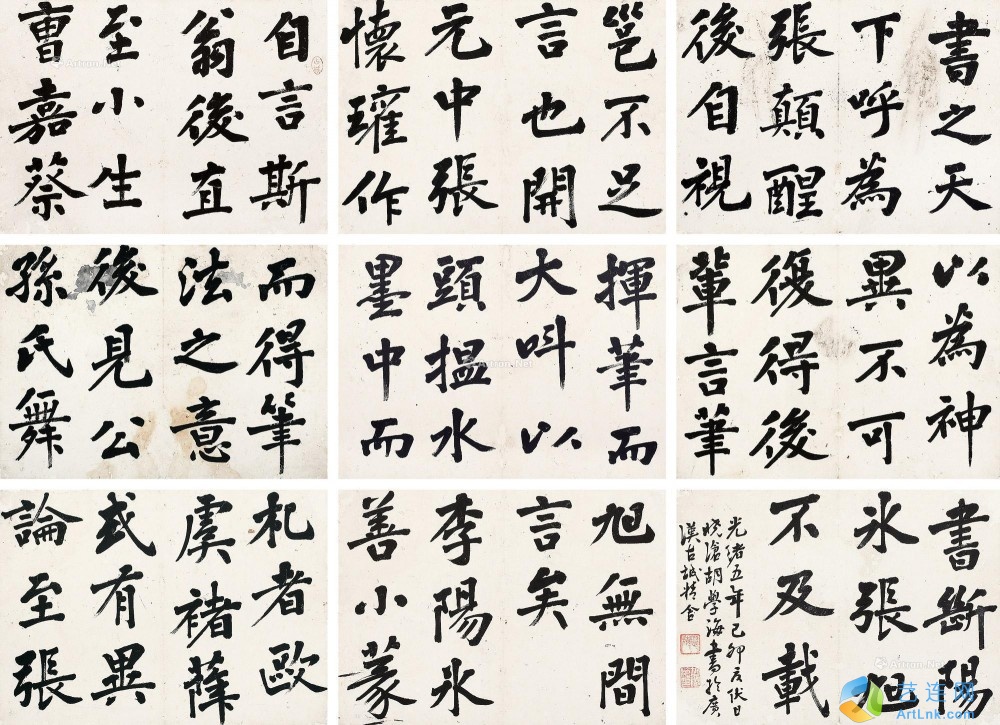 自言斯
翁後直
至小生
曹嘉蔡
邕不足
言也開
元中張
懷瓘作
書之天
下呼為
張顛醒
後自視
而得筆
法之意
後見公
孫氏舞
揮筆而
大叫以
頭揾水
墨中而
以為神
異不可
復得後
輩言筆
札者歐
虞褚薛
或有異
論至張
旭無間
言矣
李陽冰
善小篆
書斷陽
冰張旭
不及載
光緒五年己卯夏伏日
晓滄胡學海書於廣
漢古城精舍
艺连网
ArtLnk.com